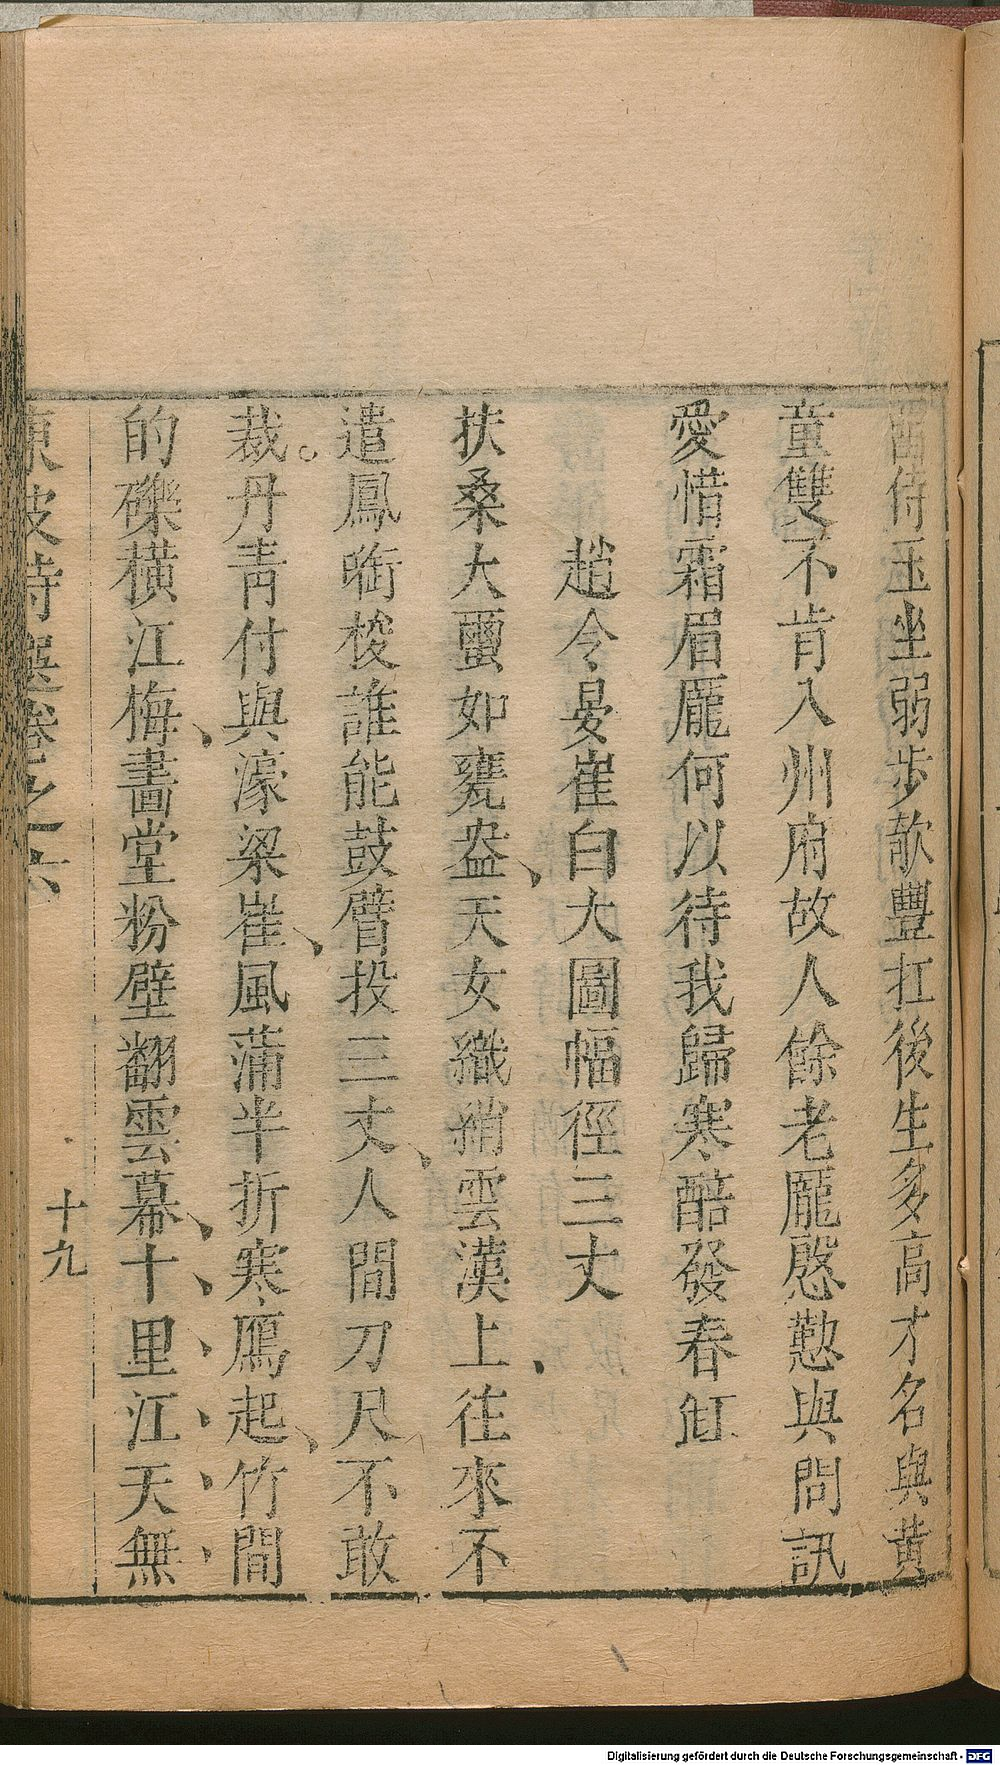 酒侍玉坐弱步欹豐扛後生多高才名與黃
童雙不肯入州府故人餘老龐慇懃與問訊
愛惜霜眉龐何以待我歸寒醅發春缸
趙令晏崔白大圖幅徑三丈
扶桑大繭如甕盎天女織綃雲漢上往來不
遣鳳銜梭誰能鼓臂投三丈人間刀尺不敢
裁丹青付與濠梁崔風蒲半折寒鴈起竹間
的礫橫江梅畫堂粉壁翻雲幕十里江天無
東坡詩選卷之六
十九
Digitalisierung gefördert durch die Deutsche Forschungsgemeinschaft - DFG